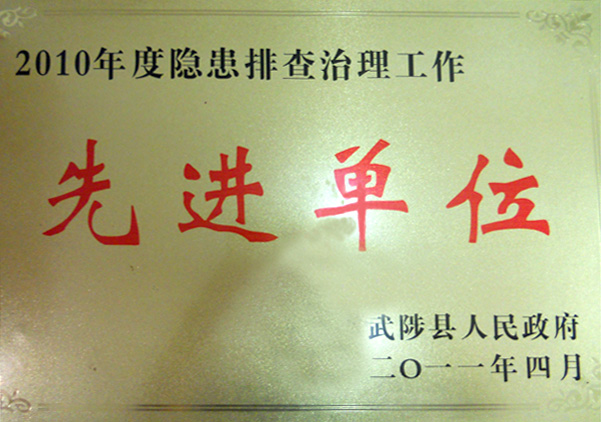 2010年度隐患排查治理工作
先进单位
武陟县人民政府
二〇一一年四月